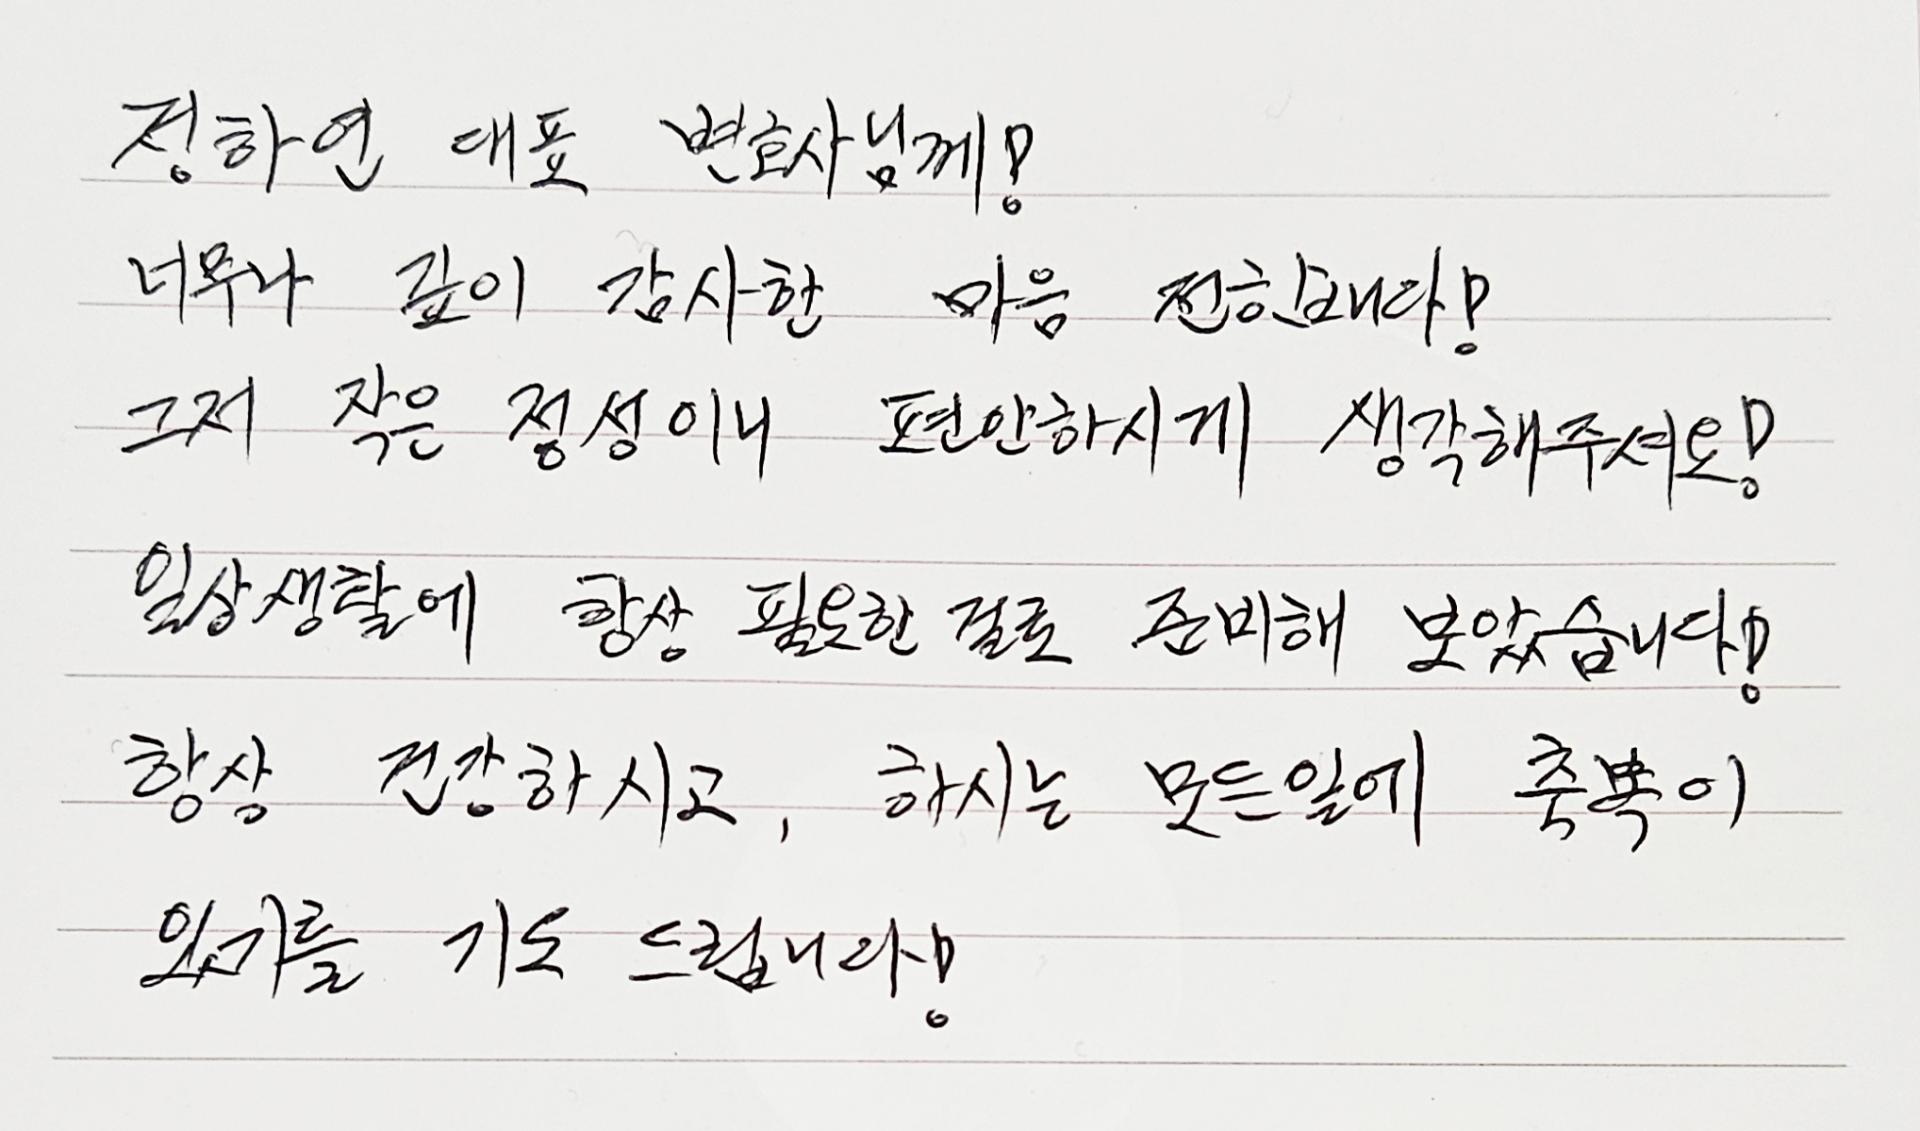 정하연 대표 변호사님께!
너무나 깊이 감사한 마음 전합니다!
그저 작은 정성이니 편안하시게 생각해주셔요!
일상생활에 항상 필요한 걸로 준비해 보았습니다!
항상 건강하시고, 하시는 모든일에 축복이
있기를 기도 드립니다!